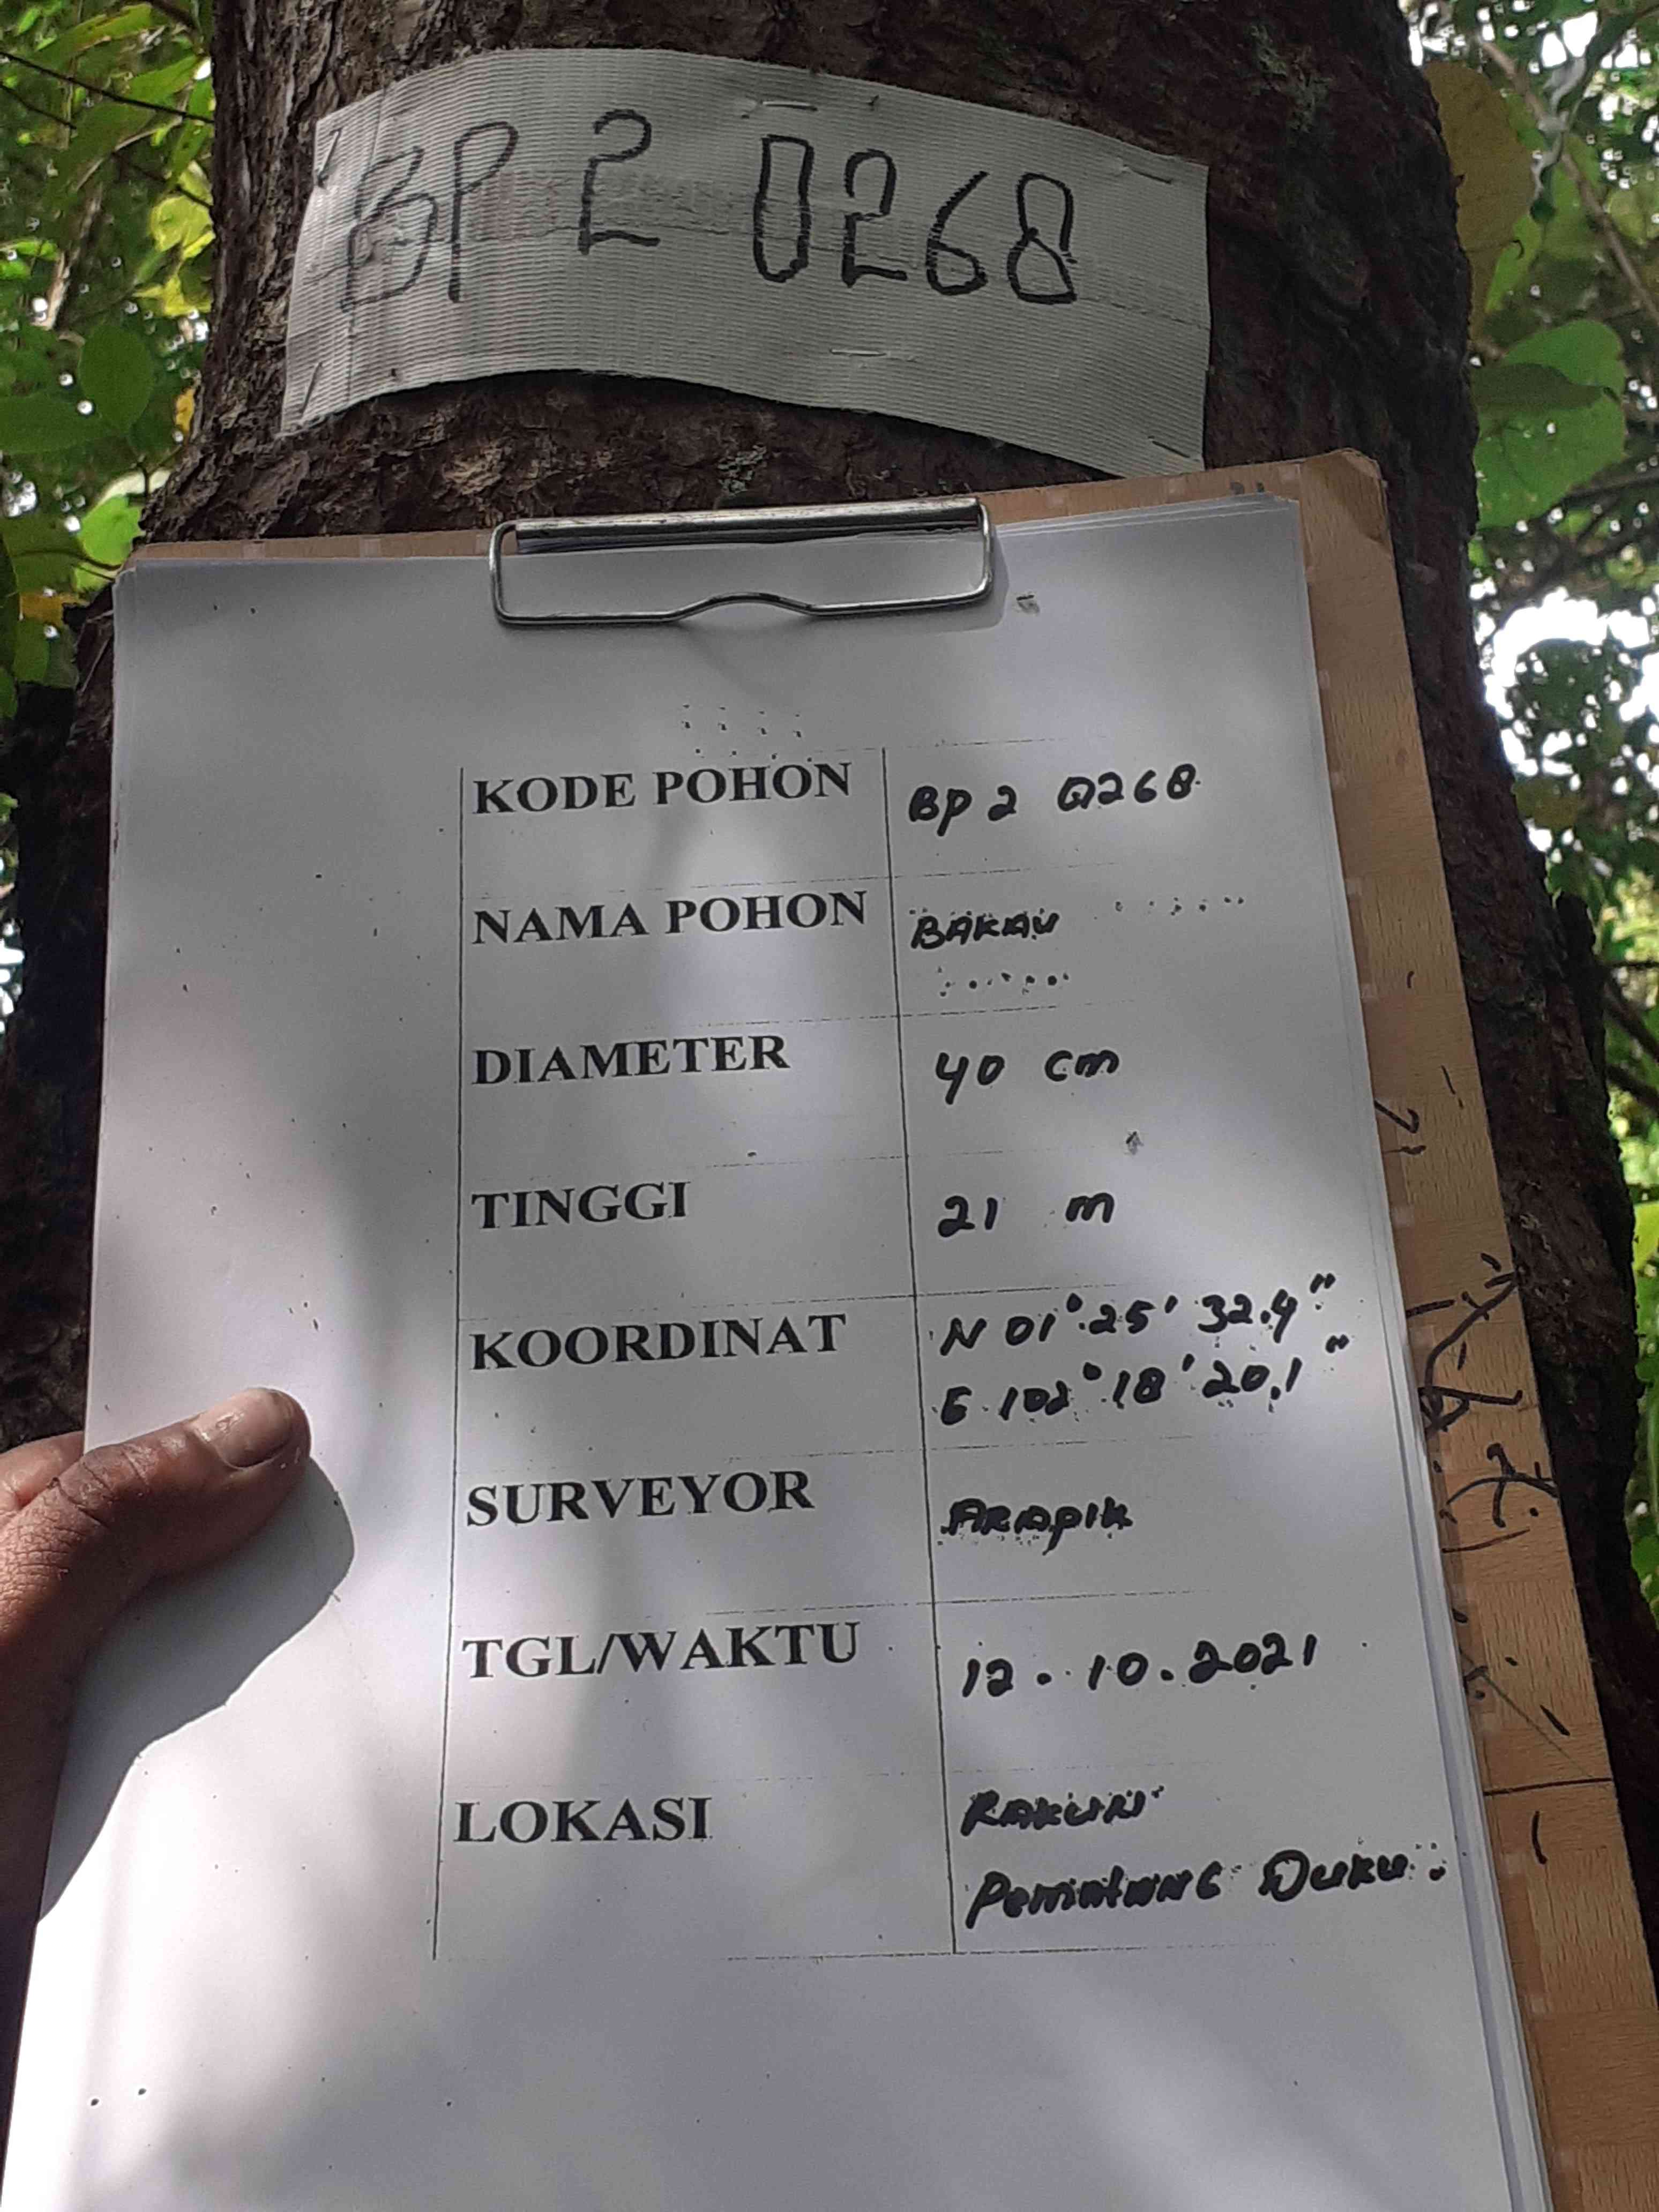 BP 2 0268
KODE POHON BP 2 0268
NAMA POHON BAKAU
DIAMETER 40 cm
TINGGI 21 m
KOORDINAT N 01° 25' 32.4"
E 102° 18' 20,1"
SURVEYOR
TGL/WAKTU 12. 10. 2021
LOKASI
Duku